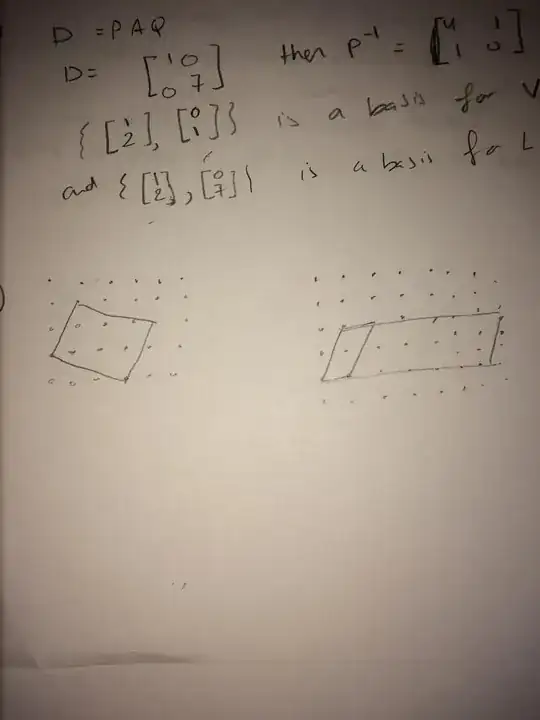 D = PAQ
D = [1 0; 0 7] then P⁻¹ = [4 1; 1 0]
{[1; 2], [0; 1]} is a basis for V
and {[1; 2], [0; 7]} is a basis for L
)